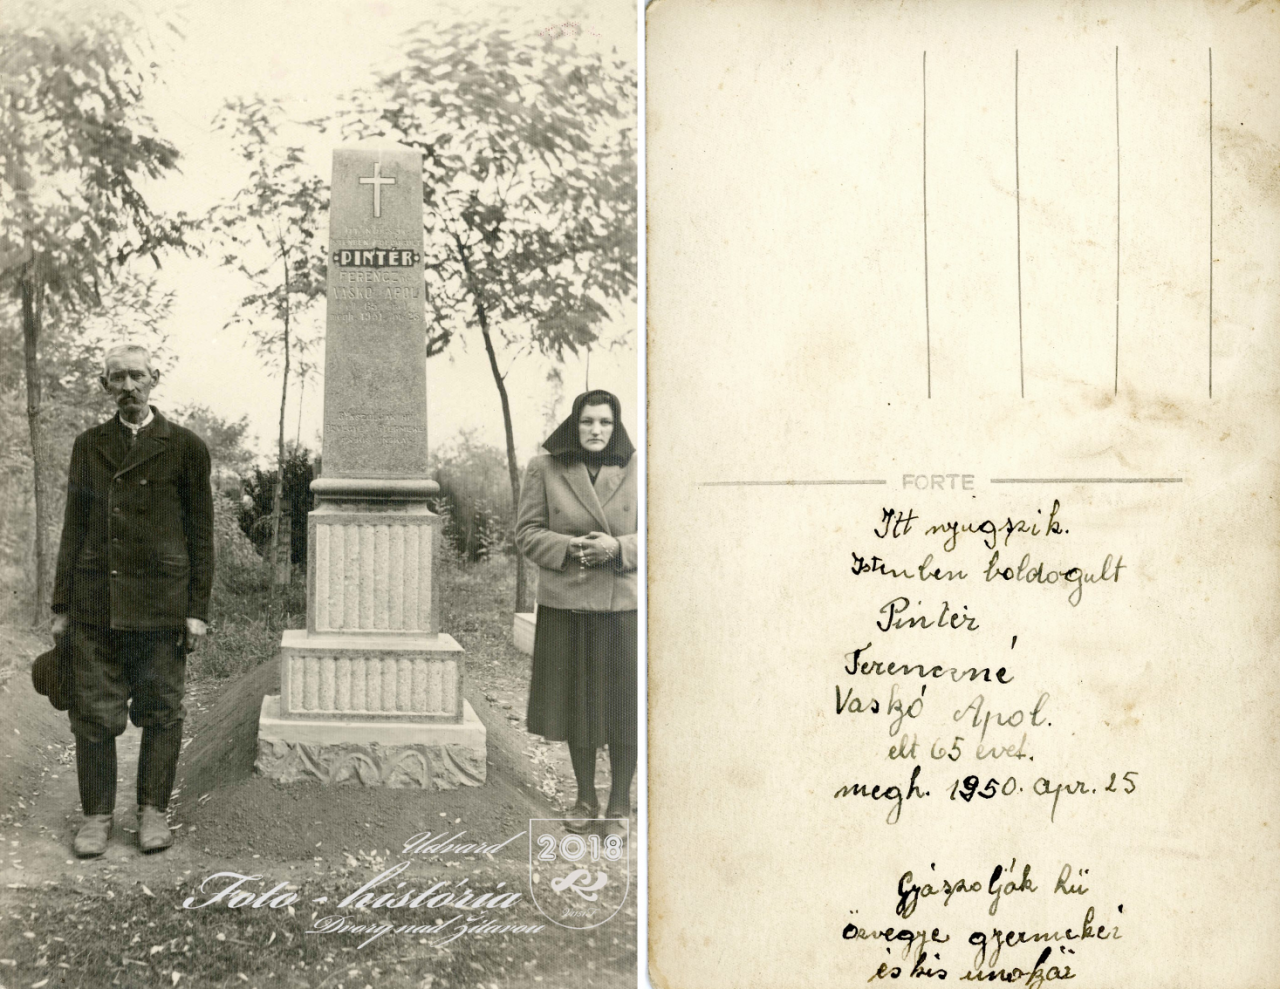 PINTÉR
FERENCZNÉ
VASKÓ APOL
Udvard
2018
Foto - história
Dvorg nad Žitavou
FORTE
Itt nyugszik.
Istenben boldogult
Pintér
Ferencné
Vaskó Apol.
élt 65 évet.
megh. 1950. apr. 25
Gyászolják hű
özvegye gyermekei
és kis unokái